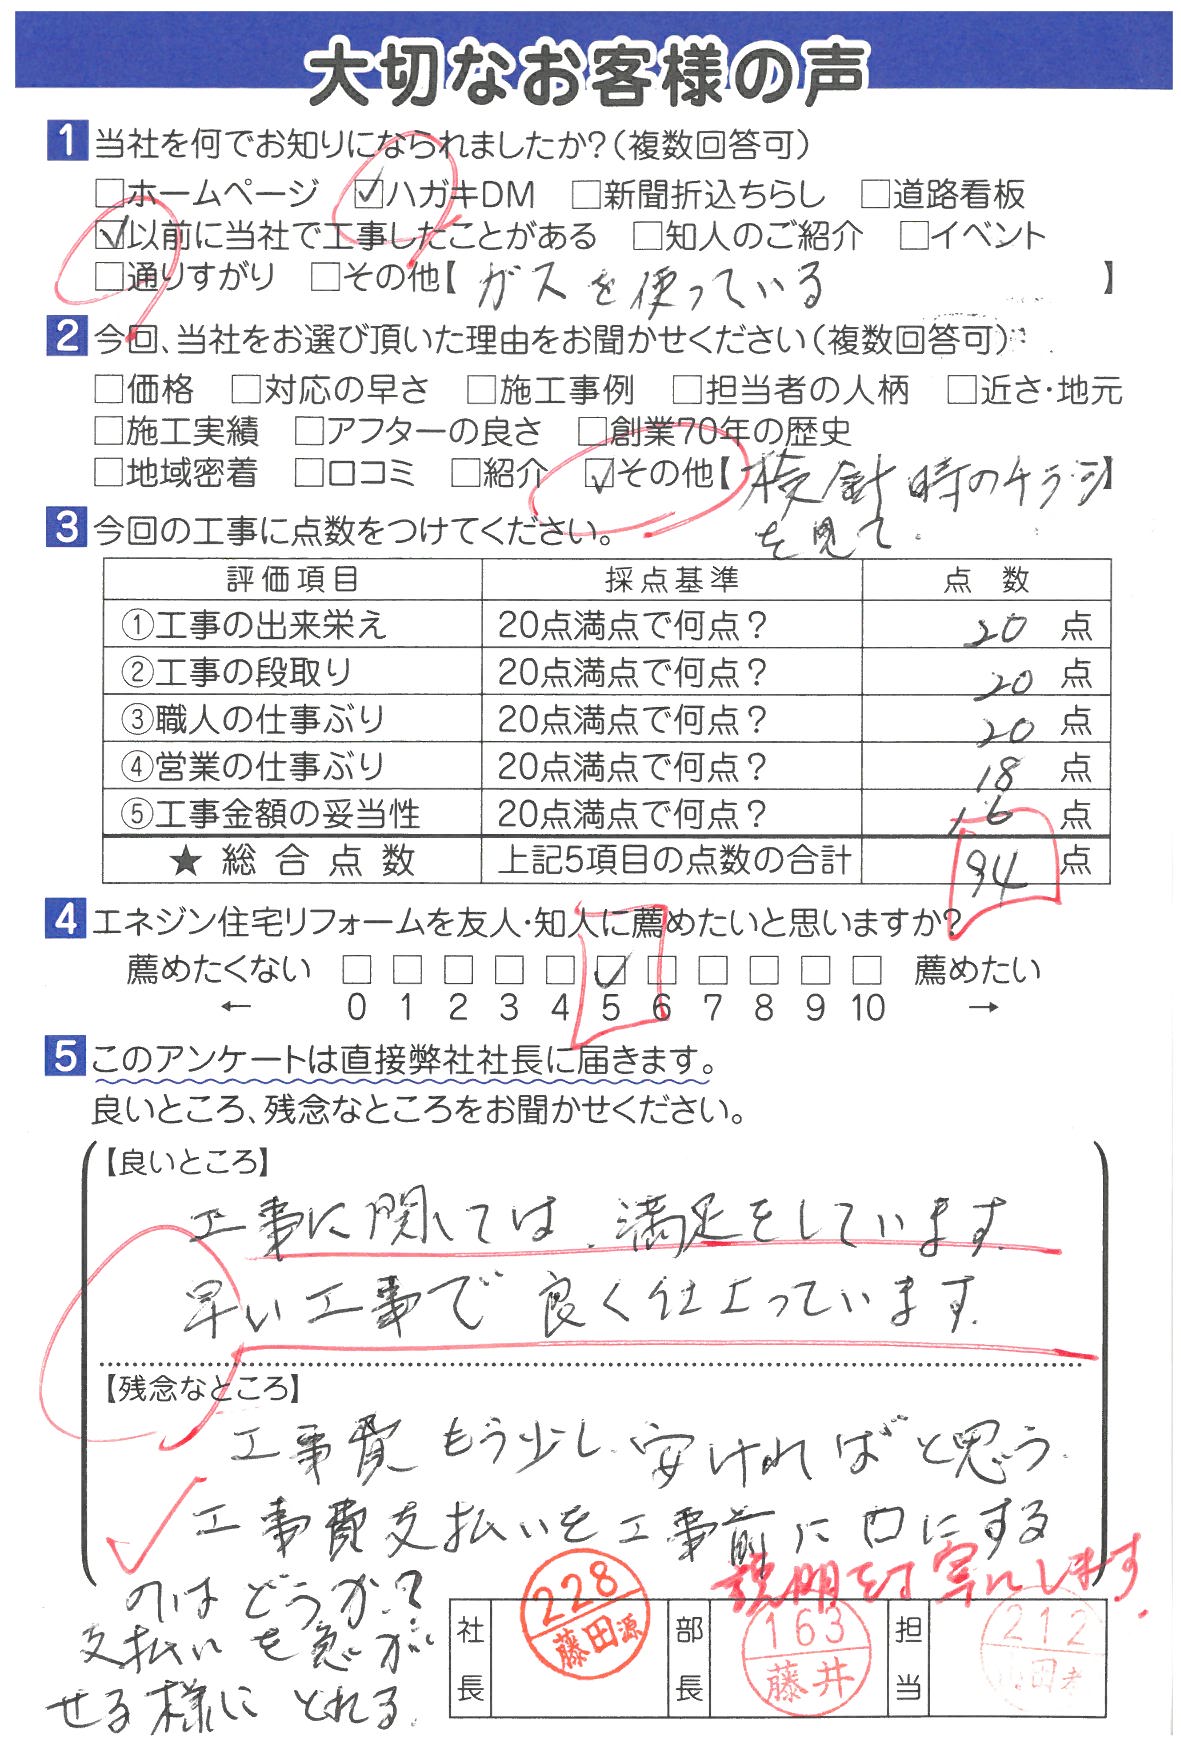 大切なお客様の声
1 当社を何でお知りになられましたか?(複数回答可)
□ホームページ ☑ハガキDM □新聞折込ちらし □道路看板
☑以前に当社で工事したことがある □知人のご紹介 □イベント
□通りすがり □その他【 ガスを使っている 】
2 今回、当社をお選び頂いた理由をお聞かせください(複数回答可)
□価格 □対応の早さ □施工事例 □担当者の人柄 □近さ・地元
□施工実績 □アフターの良さ □創業70年の歴史
□地域密着 □口コミ □紹介 ☑その他【検針時のチラシ】
を見て.
3 今回の工事に点数をつけてください。
評価項目 採点基準 点数
①工事の出来栄え 20点満点で何点? 20 点
②工事の段取り 20点満点で何点? 20 点
③職人の仕事ぶり 20点満点で何点? 20 点
④営業の仕事ぶり 20点満点で何点? 18 点
⑤工事金額の妥当性 20点満点で何点? 16 点
★総合点数 上記5項目の点数の合計 94 点
4 エネジン住宅リフォームを友人・知人に薦めたいと思いますか?
薦めたくない □ □ □ □ □ ☑ □ □ □ □ □ 薦めたい
← 0 1 2 3 4 5 6 7 8 9 10 →
5 このアンケートは直接弊社社長に届きます。
良いところ、残念なところをお聞かせください。
【良いところ】
工事に関しては、満足をしています.
早い工事で良く仕上っています.
【残念なところ】
工事費もう少し安ければと思う.
工事費支払いを工事前に口にする
のはどうか?
支払いを急が
せる様にとれる.
説明を丁寧にします.
社長 228 藤田源 部長 163 藤井 担当 212 田孝